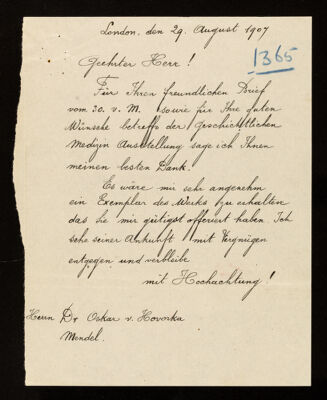 London, den 29. August 1907
1365
Geehrter Herr!
Für Ihren freundlichen Brief
vom 30. v. M. sowie für Ihre guten
Wünsche betreffs der Geschichtlichen
Medizin Ausstellung sage ich Ihnen
meinen besten Dank.
Es wäre mir sehr angenehm
ein Exemplar des Werks zu erhalten
das Sie mir gütigst offeriert haben. Ich
sehe seiner Ankunft mit Vergnügen
entgegen und verbleibe
mit Hochachtung!
Herrn Dr Oskar v. Hovorka
Mendel.